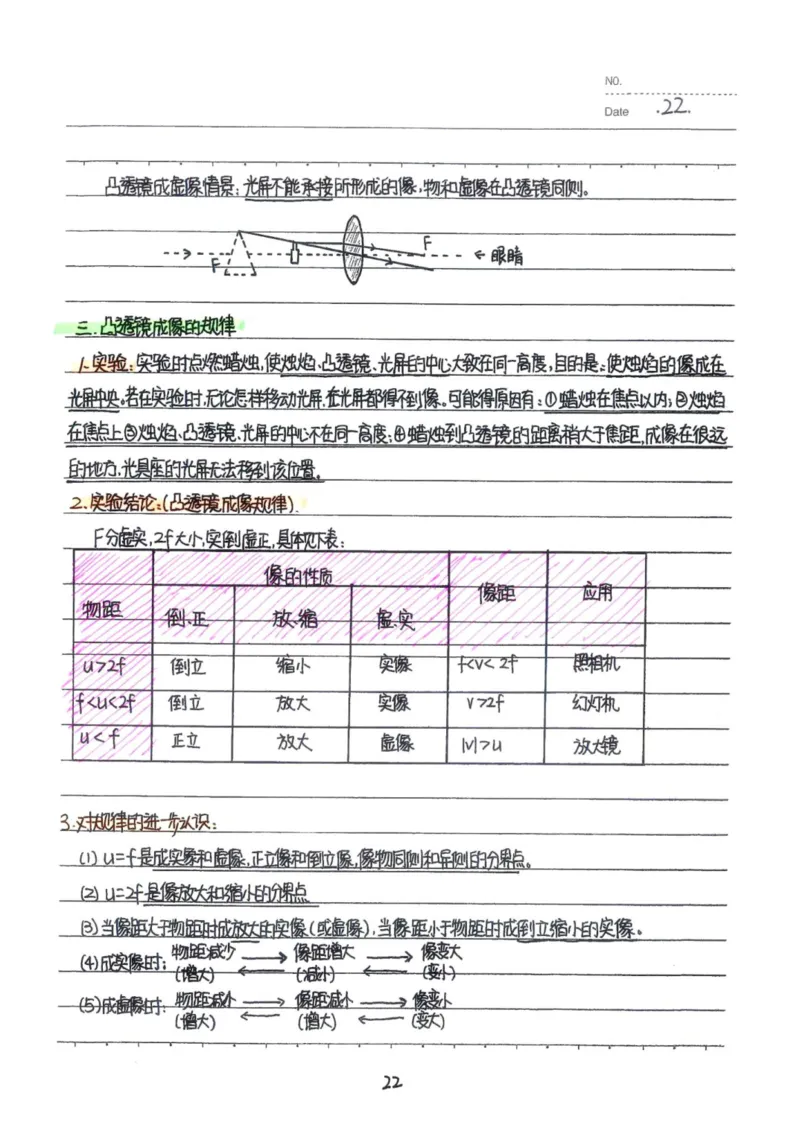 NO.
Date .22.
凸透镜成虚像情景:光屏不能承接所形成的像,物和虚像在凸透镜同侧。
F
F
眼睛
三.凸透镜成像的规律
1.实验:实验时点燃蜡烛,使烛焰、凸透镜、光屏的中心大致在同一高度,目的是:使烛焰的像成在
光屏中央。若在实验时,无论怎样移动光屏,在光屏都得不到像。可能得原因有:①蜡烛在焦点以内;②烛焰
在焦点上③烛焰、凸透镜、光屏的中心不在同一高度;④蜡烛到凸透镜的距离稍大于焦距,成像在很远
的地方,光具座的光屏无法移到该位置。
2.实验结论:(凸透镜成像规律).
F分虚实,2f大小,实倒虚正,具体见下表:
物距 像的性质 像距 应用
倒、正 放、缩 虚、实
u>2f 倒立 缩小 实像 f<v<2f 照相机
f<u<2f 倒立 放大 实像 v>2f 幻灯机
u<f 正立 放大 虚像 |v|>u 放大镜
3.对规律的进一步认识:
(1) u=f是成实像和虚像,正立像和倒立像,像物同侧和异侧的分界点。
(2) u=2f是像放大和缩小的分界点
(3)当像距大于物距时成放大的实像(或虚像),当像距小于物距时成倒立缩小的实像。
(4)成实像时: 物距减少 → 像距增大 → 像变大
(增大) ← (减小) ← (变小)
(5)成虚像时: 物距减小 → 像距减小 → 像变小
(增大) ← (增大) ← (变大)
22